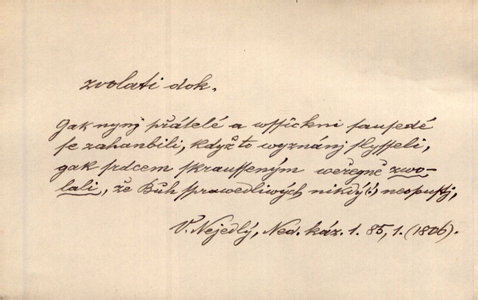 zvolati dok.
Gak nynj přátelé a wssickni sausedé
se zahanbili, když to wyznánj slysseli,
gak srdcem skrausseným weřegně zwo-
lali, že Bůh sprawedliwých nikdý(!) neopustj,
V. Nejedlý, Ned. káz. 1. 85, 1. (1806).